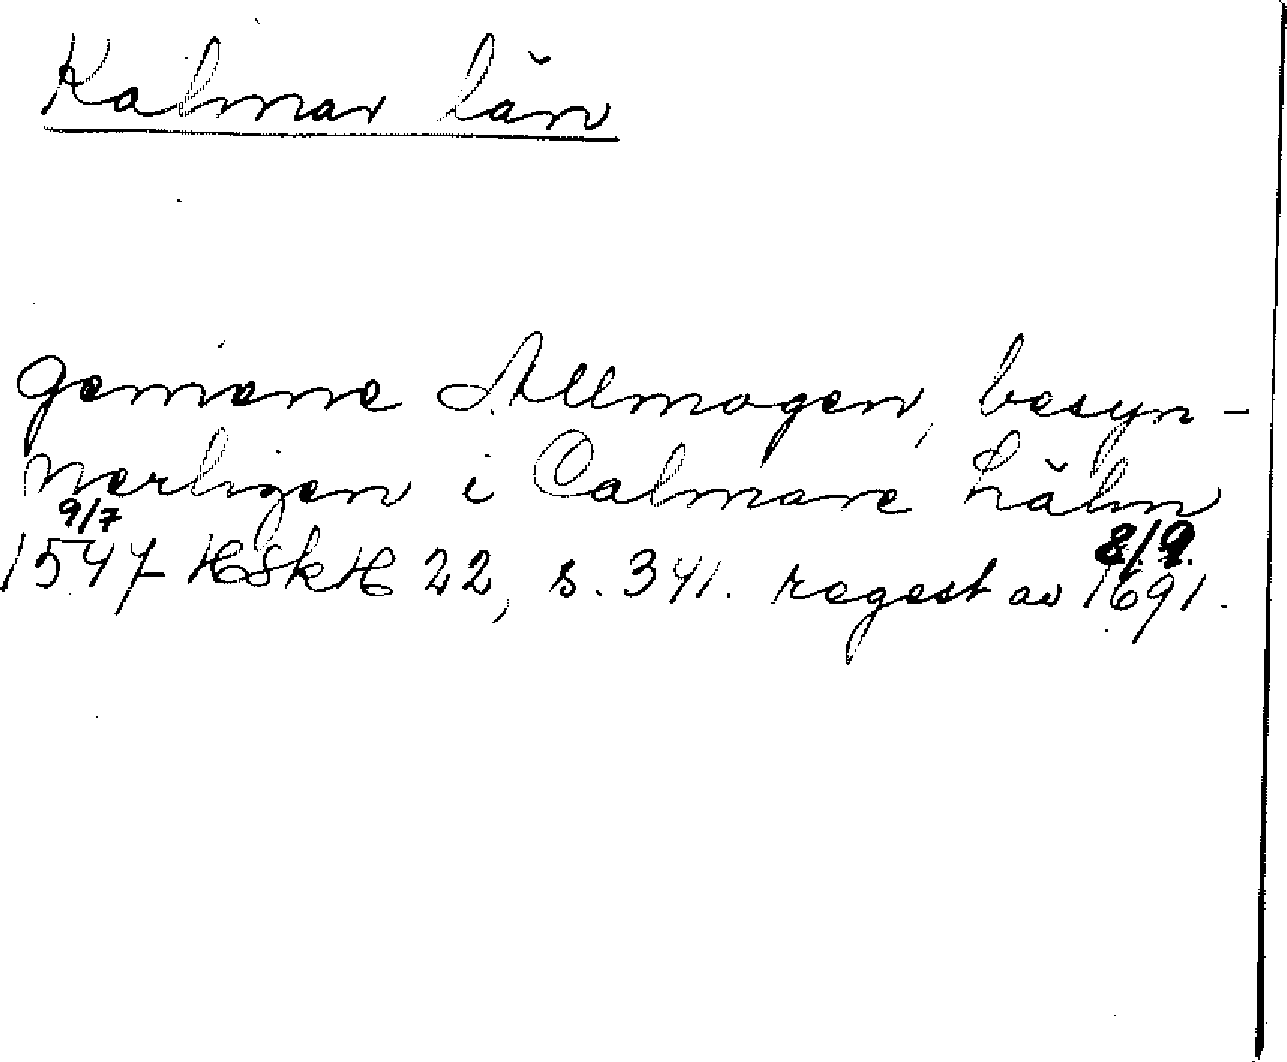 Kalmar län
gemene Allmogen, besyn-
nerligen i Calmare Lähn
9/7 8/9
1547 HSkH 22, s. 341. regest av 1691.